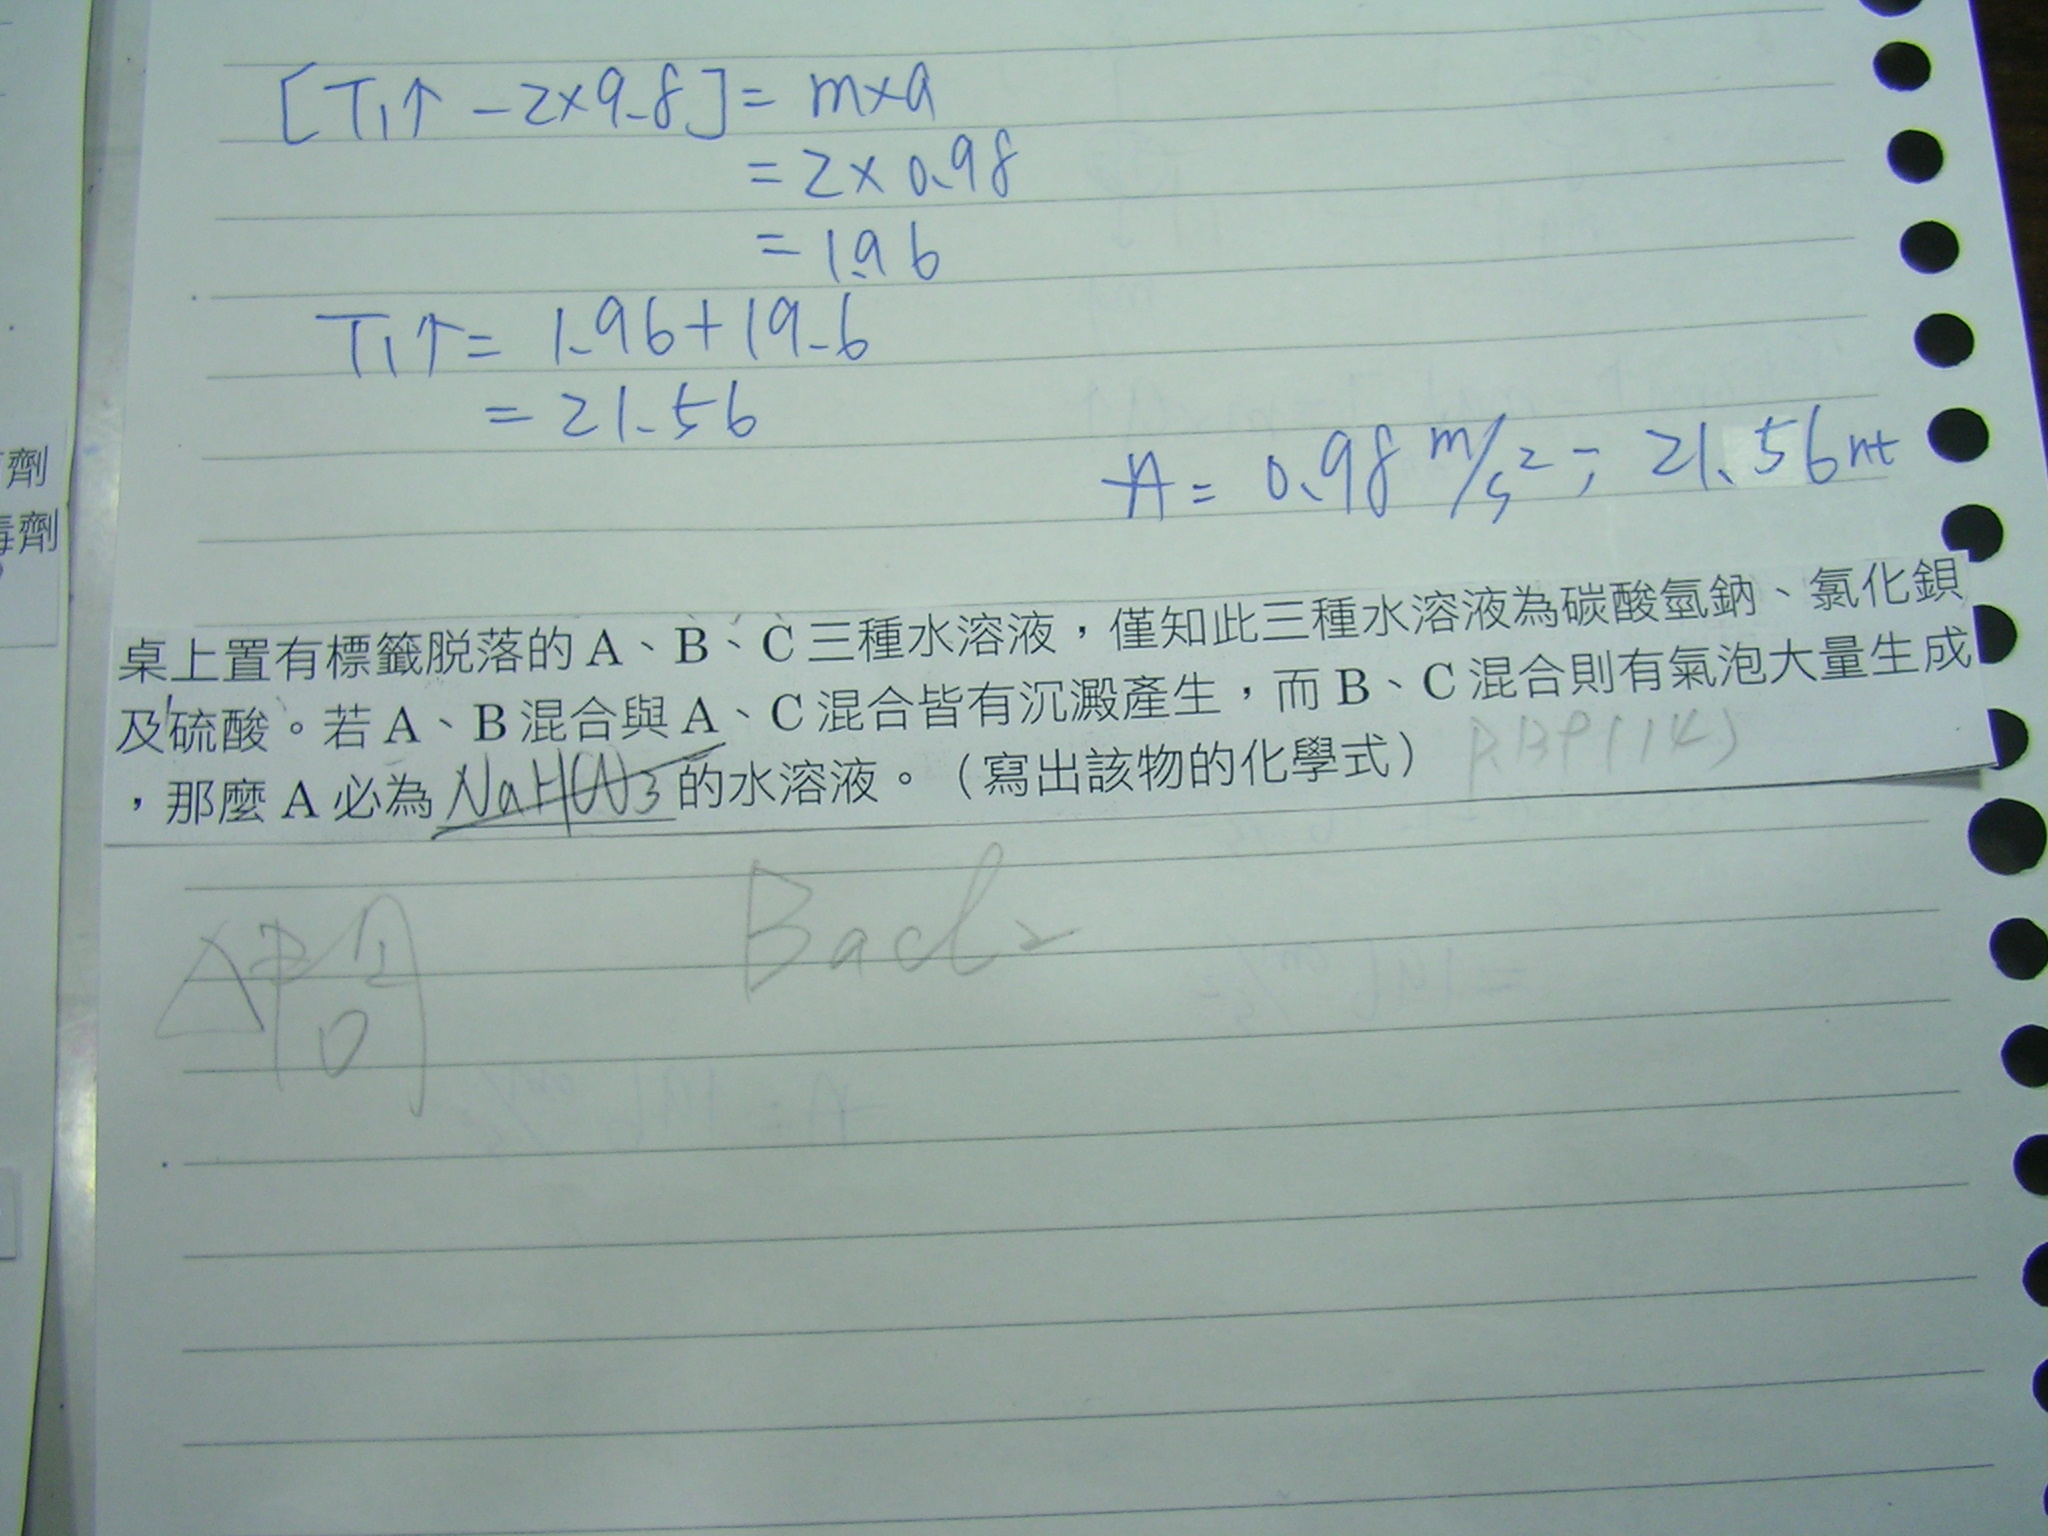 [T₁↑ - 2×9.8] = m×a
= 2×0.98
= 1.96
T₁↑ = 1.96+19.6
= 21.56
A = 0.98 m/s² ; 21.56 nt
劑
毒劑
桌上置有標籤脫落的 A、B、C 三種水溶液,僅知此三種水溶液為碳酸氫鈉、氯化鋇
及硫酸。若 A、B 混合與 A、C 混合皆有沉澱產生,而 B、C 混合則有氣泡大量生成
,那麼 A 必為 NaHCO3 的水溶液。(寫出該物的化學式)
BaCl₂